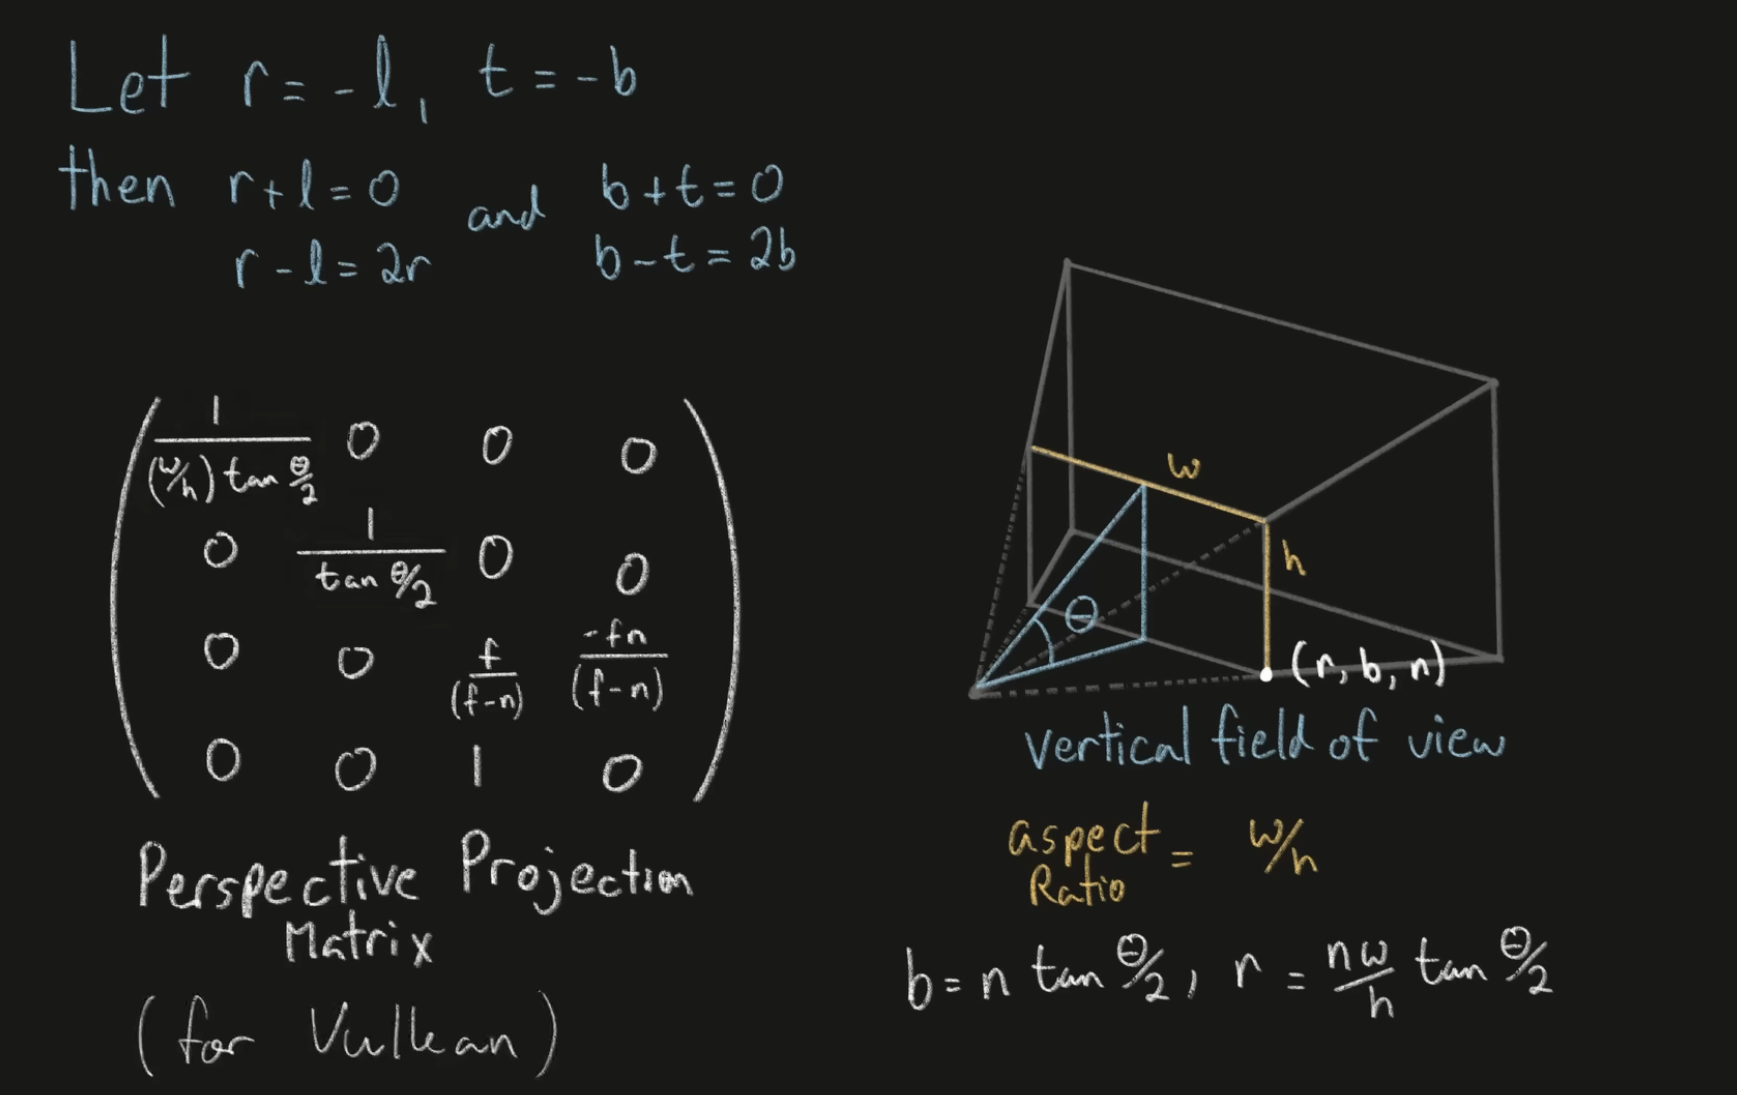 Let r = -l, t = -b
then r + l = 0 and b + t = 0
r - l = 2r b - t = 2b
1/((w/h) tan θ/2) 0 0 0
0 1/(tan θ/2) 0 0
0 0 f/(f-n) -fn/(f-n)
0 0 1 0
Perspective Projection
Matrix
(for Vulkan)
w
h
θ
(r, b, n)
vertical field of view
aspect
Ratio = w/h
b = n tan θ/2, r = nw/h tan θ/2